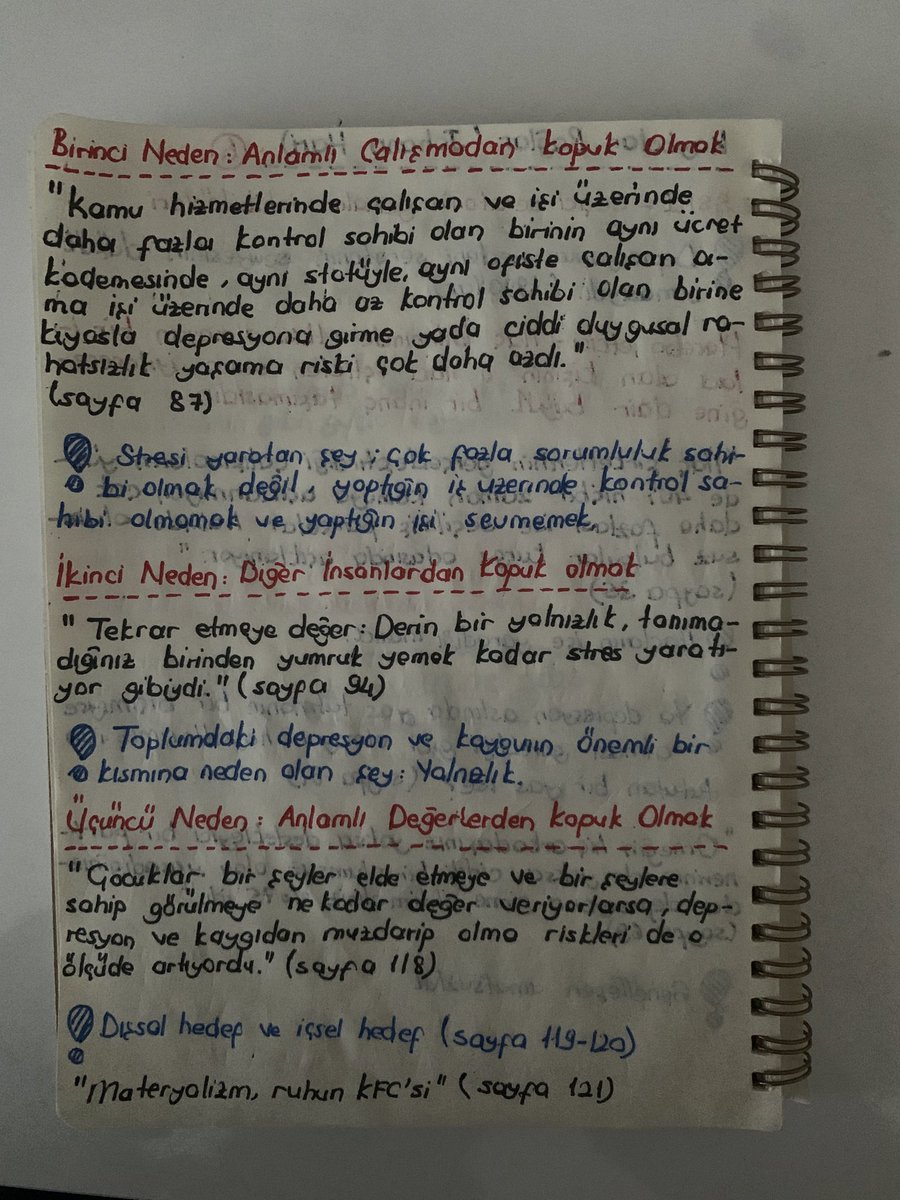 Birinci Neden: Anlamlı Çalışmadan Kopuk Olmak
"Kamu hizmetlerinde çalışan ve işi üzerinde
daha fazla kontrol sahibi olan birinin aynı ücret
kademesinde, aynı statüyle, aynı ofiste çalışan a-
ma işi üzerinde daha az kontrol sahibi olan birine
kıyasla depresyona girme yada ciddi duygusal ra-
hatsızlık yaşama riski çok daha azdı."
(sayfa 87)
Stresi yaratan şey; çok fazla sorumluluk sahi-
bi olmak değil, yaptığın iş üzerinde kontrol sa-
hibi olmamak ve yaptığın işi sevmemek.
İkinci Neden: Diğer İnsanlardan Kopuk olmak
"Tekrar etmeye değer: Derin bir yalnızlık, tanıma-
dığınız birinden yumruk yemek kadar stres yaratı-
yor gibiydi." (sayfa 94)
Toplumdaki depresyon ve kaygının önemli bir
kısmına neden olan şey: Yalnızlık.
Üçüncü Neden: Anlamlı Değerlerden Kopuk Olmak
"Çocuklar bir şeyler elde etmeye ve bir şeylere
sahip görülmeye ne kadar değer veriyorlarsa, dep-
resyon ve kaygıdan muzdarip olma riskleri de o
ölçüde artıyordu." (sayfa 118)
Dışsal hedef ve içsel hedef (sayfa 119-120)
"Materyalizm, ruhun KFC'si" (sayfa 121)